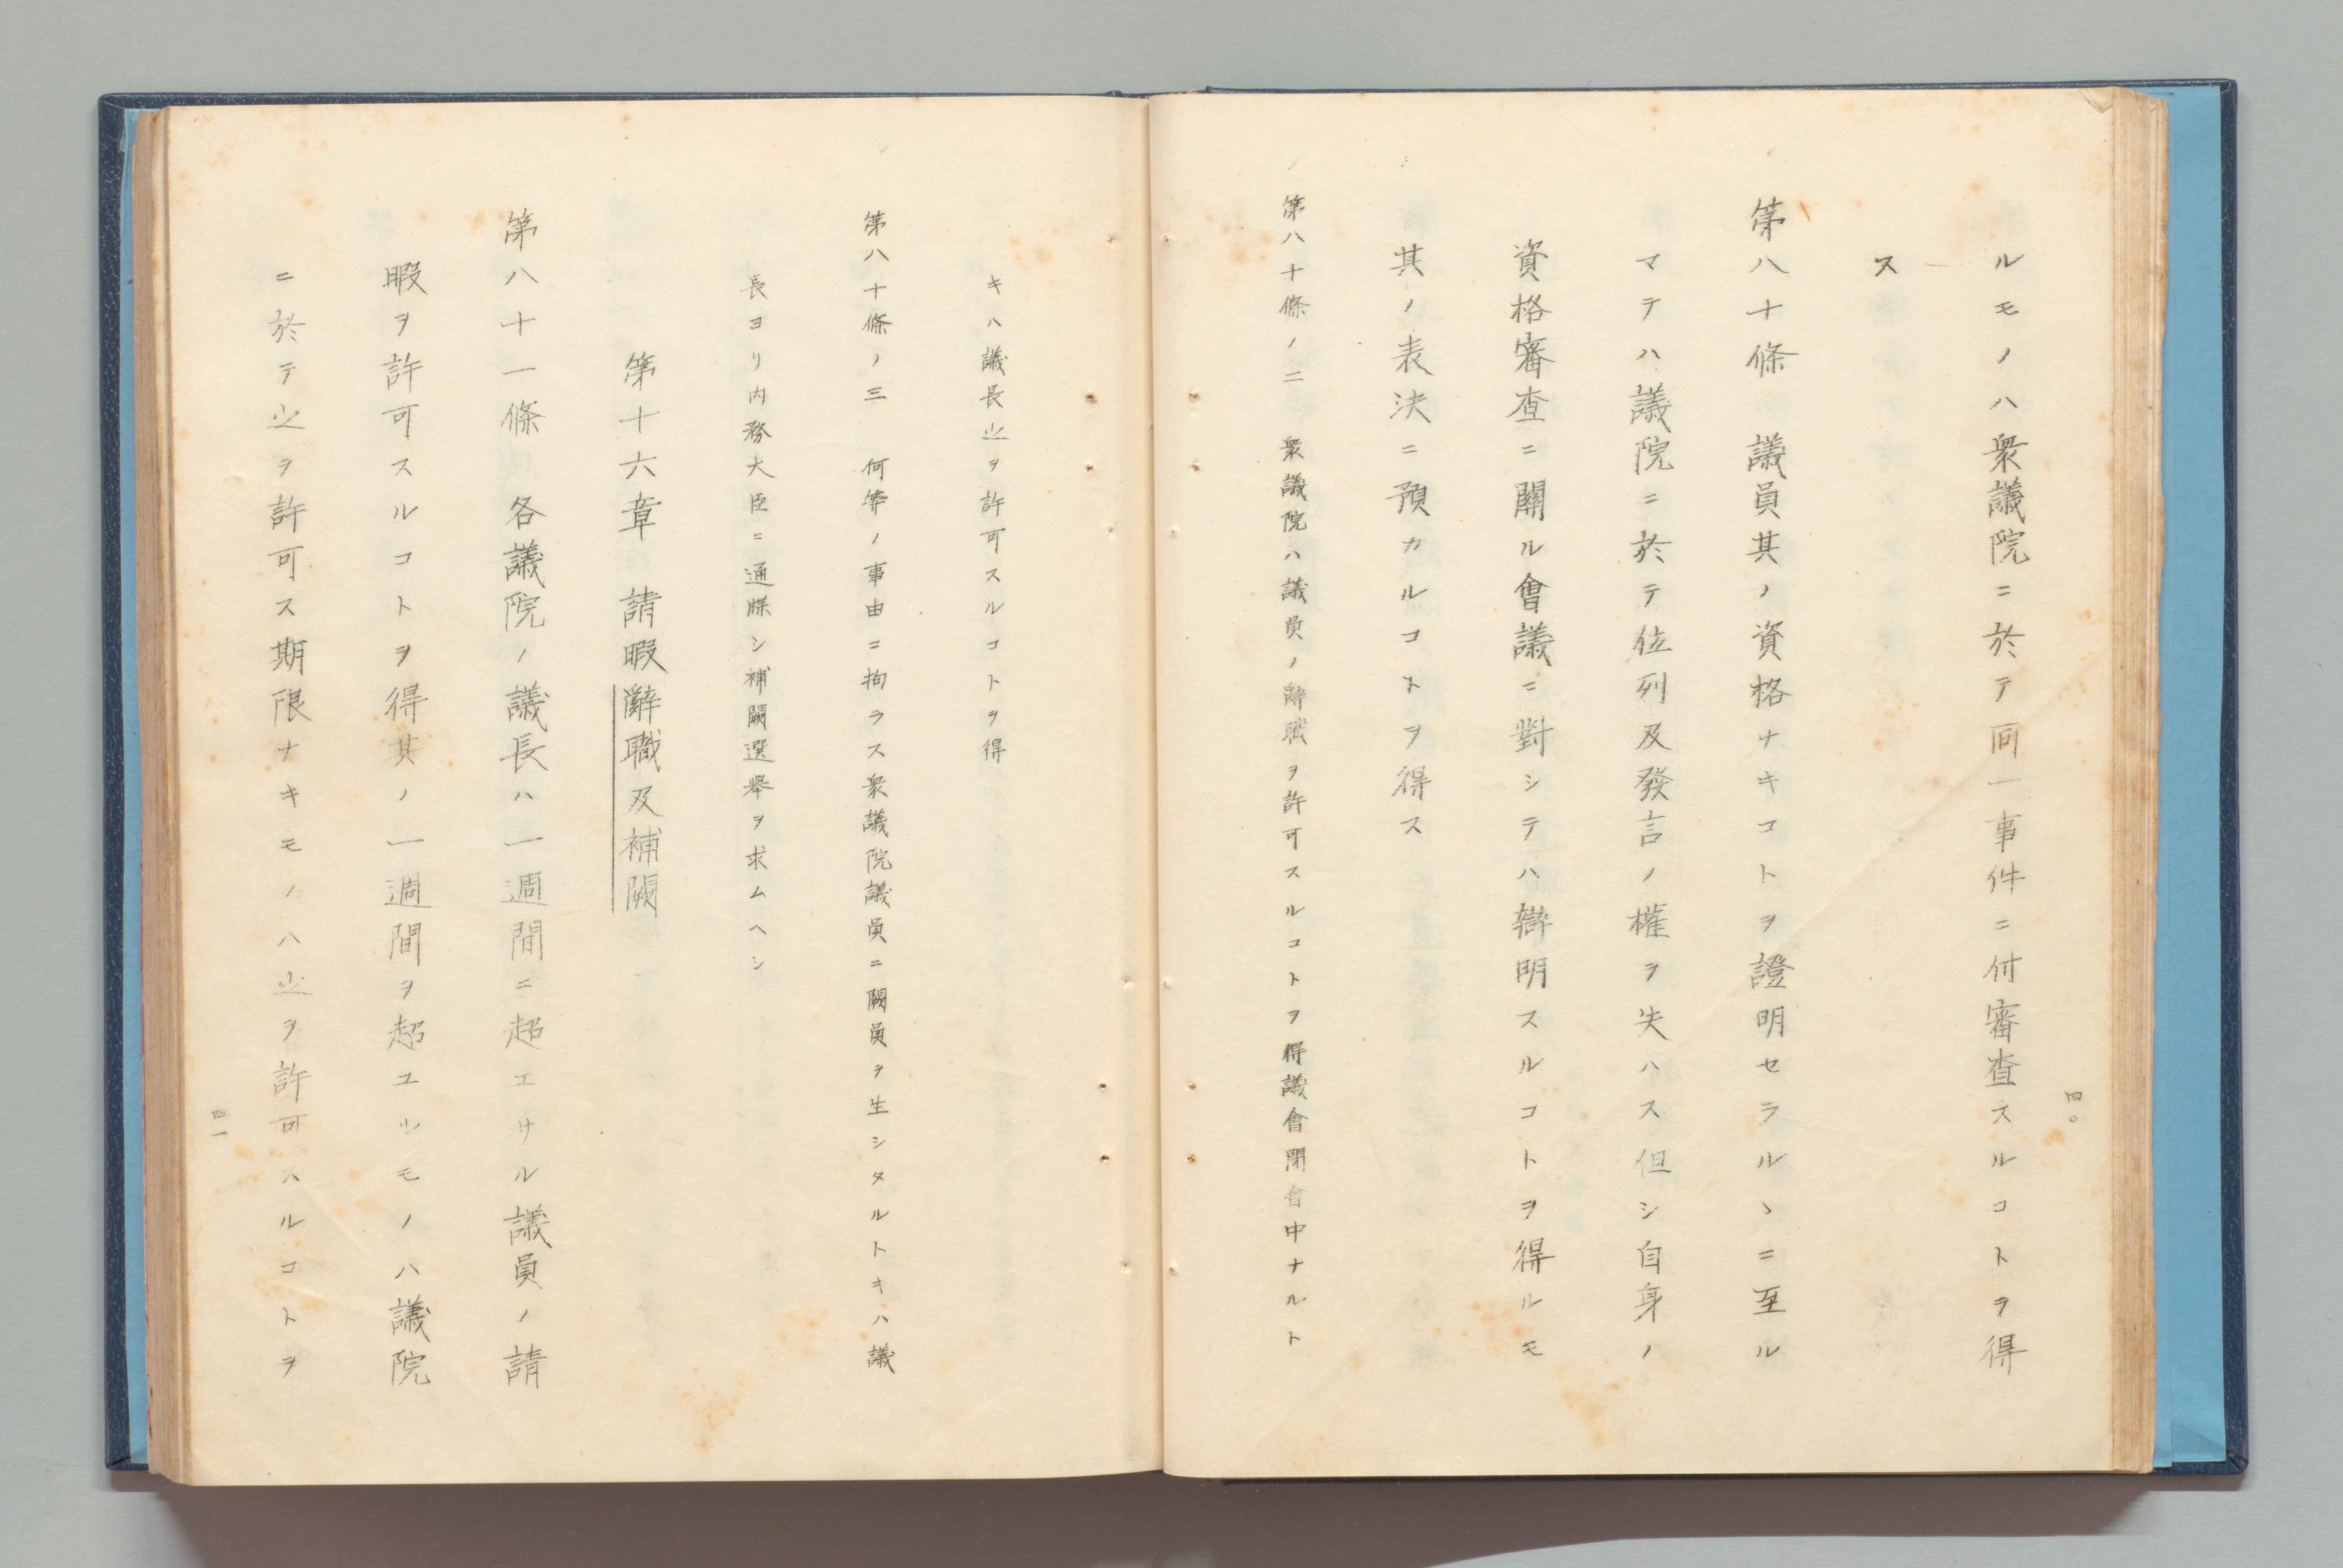 ルモノハ衆議院ニ於テ同一事件ニ付審査スルコトヲ得
ス
第八十條 議員其ノ資格ナキコトヲ證明セラルヽニ至ル
マテハ議院ニ於テ位列及發言ノ權ヲ失ハス但シ自身ノ
資格審査ニ關ル會議ニ對シテハ辯明スルコトヲ得ルモ
其ノ表決ニ預カルコトヲ得ス
第八十條ノ二 衆議院ハ議員ノ辭職ヲ許可スルコトヲ得議會閉會中ナルト
四〇
キハ議長之ヲ許可スルコトヲ得
第八十條ノ三 何等ノ事由ニ拘ラス衆議院議員ニ闕員ヲ生シタルトキハ議
長ヨリ內務大臣ニ通牒シ補闕選擧ヲ求ムヘシ
第十六章 請暇辭職及補闕
第八十一條 各議院ノ議長ハ一週間ニ超エサル議員ノ請
暇ヲ許可スルコトヲ得其ノ一週間ヲ超ユルモノハ議院
ニ於テ之ヲ許可ス期限ナキモノハ之ヲ許可スルコトヲ
四一